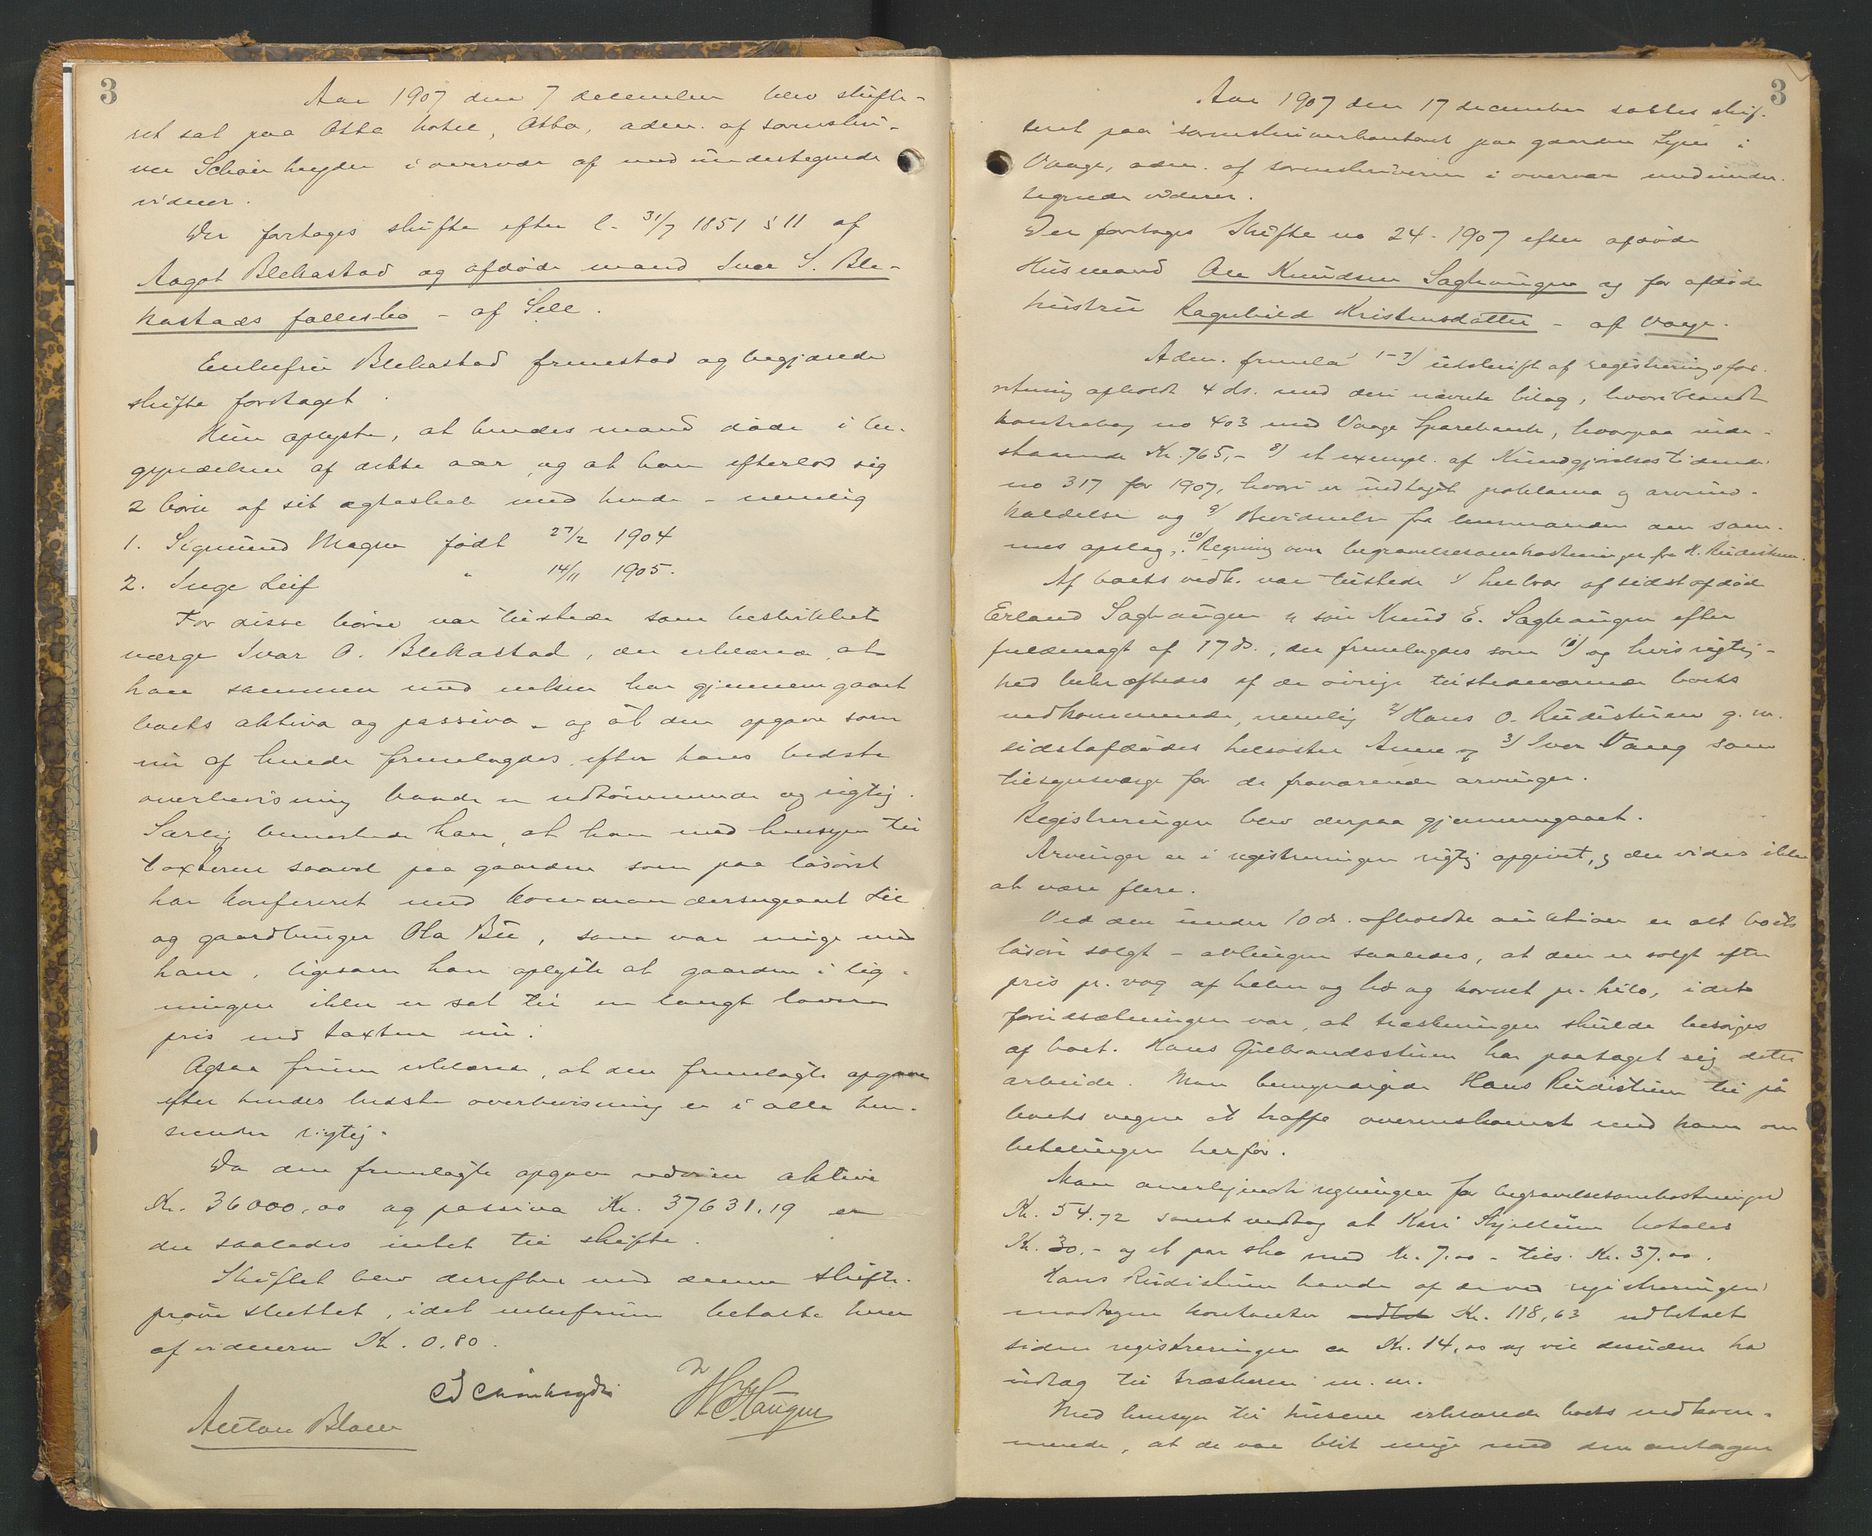 3
Aar 1907 den 7 december blev skifte-
ret sat paa Otta hotel, Otta, adm. af sorenskri-
ver Schönheyder i overvær af medundertegnede
vidner.
Der foretages skifte efter l. 31/7 1851 § 11 af
Aagot Blekastad og afdøde mand Ivar S. Ble-
kastads fællesbo - af Sell.
Enkefru Blekastad fremstod og begjærede
skifte foretaget.
Hun oplyste, at hendes mand døde i be-
gyndelsen af dette aar, og at han efterlod sig
2 børn af sit ægteskab med hende - nemlig
1. Sigmund Magne født 27/2 1904
2. Inge Leif " 14/11 1905.
For disse børn var tilstede som beskikket
værge Ivar O. Blekastad, der erklærede, at
han sammen med enken har gjennemgaaet
boets aktiva og passiva - og at den opgave som
nu af hende fremlagdes efter hans bedste
overbevisning baade er udtømmende og rigtig.
Særlig bemerkede han, at han med hensyn til
taxterne saavel paa gaarden som paa løsøret
har konfereret med kommandersergeant Lie
og gaardbruger Ola Bu, som var enige med
ham, ligesom han oplyste at gaarden i lig-
ningen ikke er sat til en langt lavere
pris end taxten nu.
Ogsaa fruen erklærede, at den fremlagte opgave
efter hendes bedste overbevisning er i alle hen-
seender rigtig.
Da den fremlagte opgave udviser aktiva
Kr. 36000,00 og passiva Kr. 37631,19 er
der saaledes intet til skifte.
Skiftet blev derefter med denne skifte-
prøve sluttet, idet enkefruen betalte hver
af vidnerne Kr. 0.80.
CSchönheyder
H Haugen
Anton Blom
3
Aar 1907 den 17 december sattes skif-
teret paa sorenskriverkontoret paa gaarden Syse i
Vaage, adm. af sorenskriveren i overvær medunder-
tegnede vidner.
Der foretages Skifte no 24 - 1907 efter afdøde
Husmand Ole Knudsen Saghaugen og før afdøde
hustru Ragnhild Kristensdatter - af Vaage.
Adm. fremla 1-7) utskrift af registreringsfor-
retning afholdt 4 ds. med deri nævnte bilag, hvoriblandt
kontrabog no 403 med Vaage Sparebank, hvorpaa inde-
staaende Kr. 765,- 8) et exempl. af Kundgjørelsestidende
no 317 for 1907, hvori er indtaget proklama og arveind-
kaldelse og 9) Bevidnelse fra lensmanden om sam-
mes opslag, 10) Regning over begravelsesomkostninger fra H. Rudistuen.
Af boets vedk. var tilstede 1) helbror af sidstafdøde
Erland Saghaugen v søn Knud E. Saghaugen efter
fuldmagt af 17 ds., der fremlagdes som 11) og hvis rigtig-
hed bekræftedes af de øvrige tilstedeværende boets
vedkommende, nemlig 2) Hans O. Rudistuen g. m.
sidstafdødes helsøster Anne og 3) Iver Vang som
tilsynsværge for de fraværende arvinger.
Registreringen blev derpaa gjennemgaaet.
Arvinger er i registreringen rigtig opgivet, og der vides ikke
at være flere.
Ved den under 10 ds. afholdte auktion er alt boets
løsøre solgt - avlingen saaledes, at den er solgt efter
pris pr. vog af halm og hø og kornet pr. kilo, idet
forudsætningen var, at træskningen skulde besørges
af boet. Hans Gulbrandsstuen har paataget sig dette
arbeide. Man bemyndigede Hans Rudistuen til på
boets vegne at træffe overenskomst med ham om
betalingen herfor.
Man anerkjendte regningen for begravelsesomkostninger
Kr. 54.72 samt vedtog at Kari Skjellum betales
Kr. 30.- og et par sko med Kr. 7.00 - tils. Kr. 37.00.
Hans Rudistuen havde af de ved registreringen
modtagne kontanter Kr. 118,63 udbetalt
siden registreringen ca Kr. 14,00 og vil desuden ha
udlæg til træskeren m. m.
Med hensyn til husene erklærede boets vedkom-
mende, at de var blit enige med den antagne